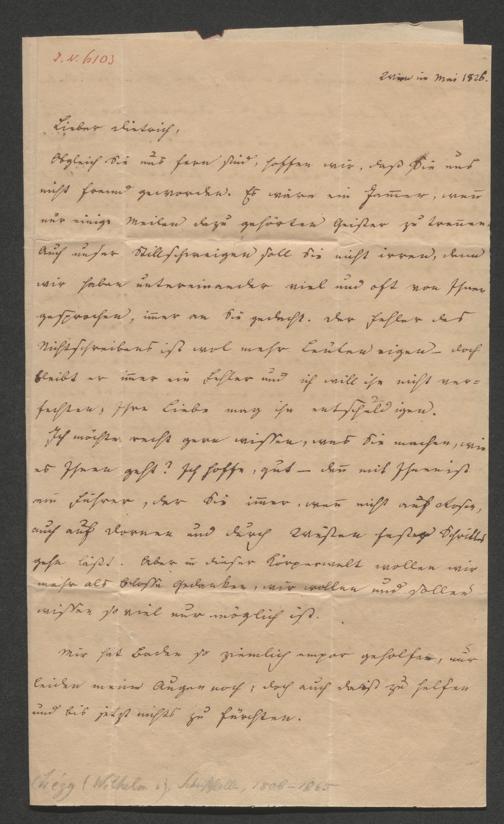 I. N. 6103
Wien im Mai 1826.
Lieber Dietrich,
Obgleich Sie uns fern sind, hoffen wir, daß Sie uns
nicht fremd geworden. Es wäre ein Jammer, wenn
nur einige Meilen dazu gehörten Geister zu trennen.
Auch unser Stillschweigen soll Sie nicht irren, denn
wir haben untereinander viel und oft von Ihnen
gesprochen, immer an Sie gedacht. Der Fehler des
Nichtschreibens ist wol mehr Leuten eigen – doch
bleibt er immer ein Fehler und ich will ihn nicht ver=
fechten; Ihre Liebe mag ihn entschuldigen.
Ich möchte recht gern wissen, was Sie machen, wie
es Ihnen geht? Ich hoffe, gut – denn mit Ihnen ist
ein Führer, der Sie immer, wenn nicht auf Rosen,
auch auf Dornen und durch Wüsten festen Schrittes
gehn läßt. Aber in dieser Körperwelt wollen wir
mehr als bloße Gedanken, wir wollen und sollen
wissen so viel nur möglich ist.
Mir hat Baden so ziemlich empor geholfen, nur
leiden meine Augen noch; doch auch da ist zu helfen
und bis jetzt nichts zu fürchten.
Chézy (Wilhelm v.), Schriftstelle, 1806–1865